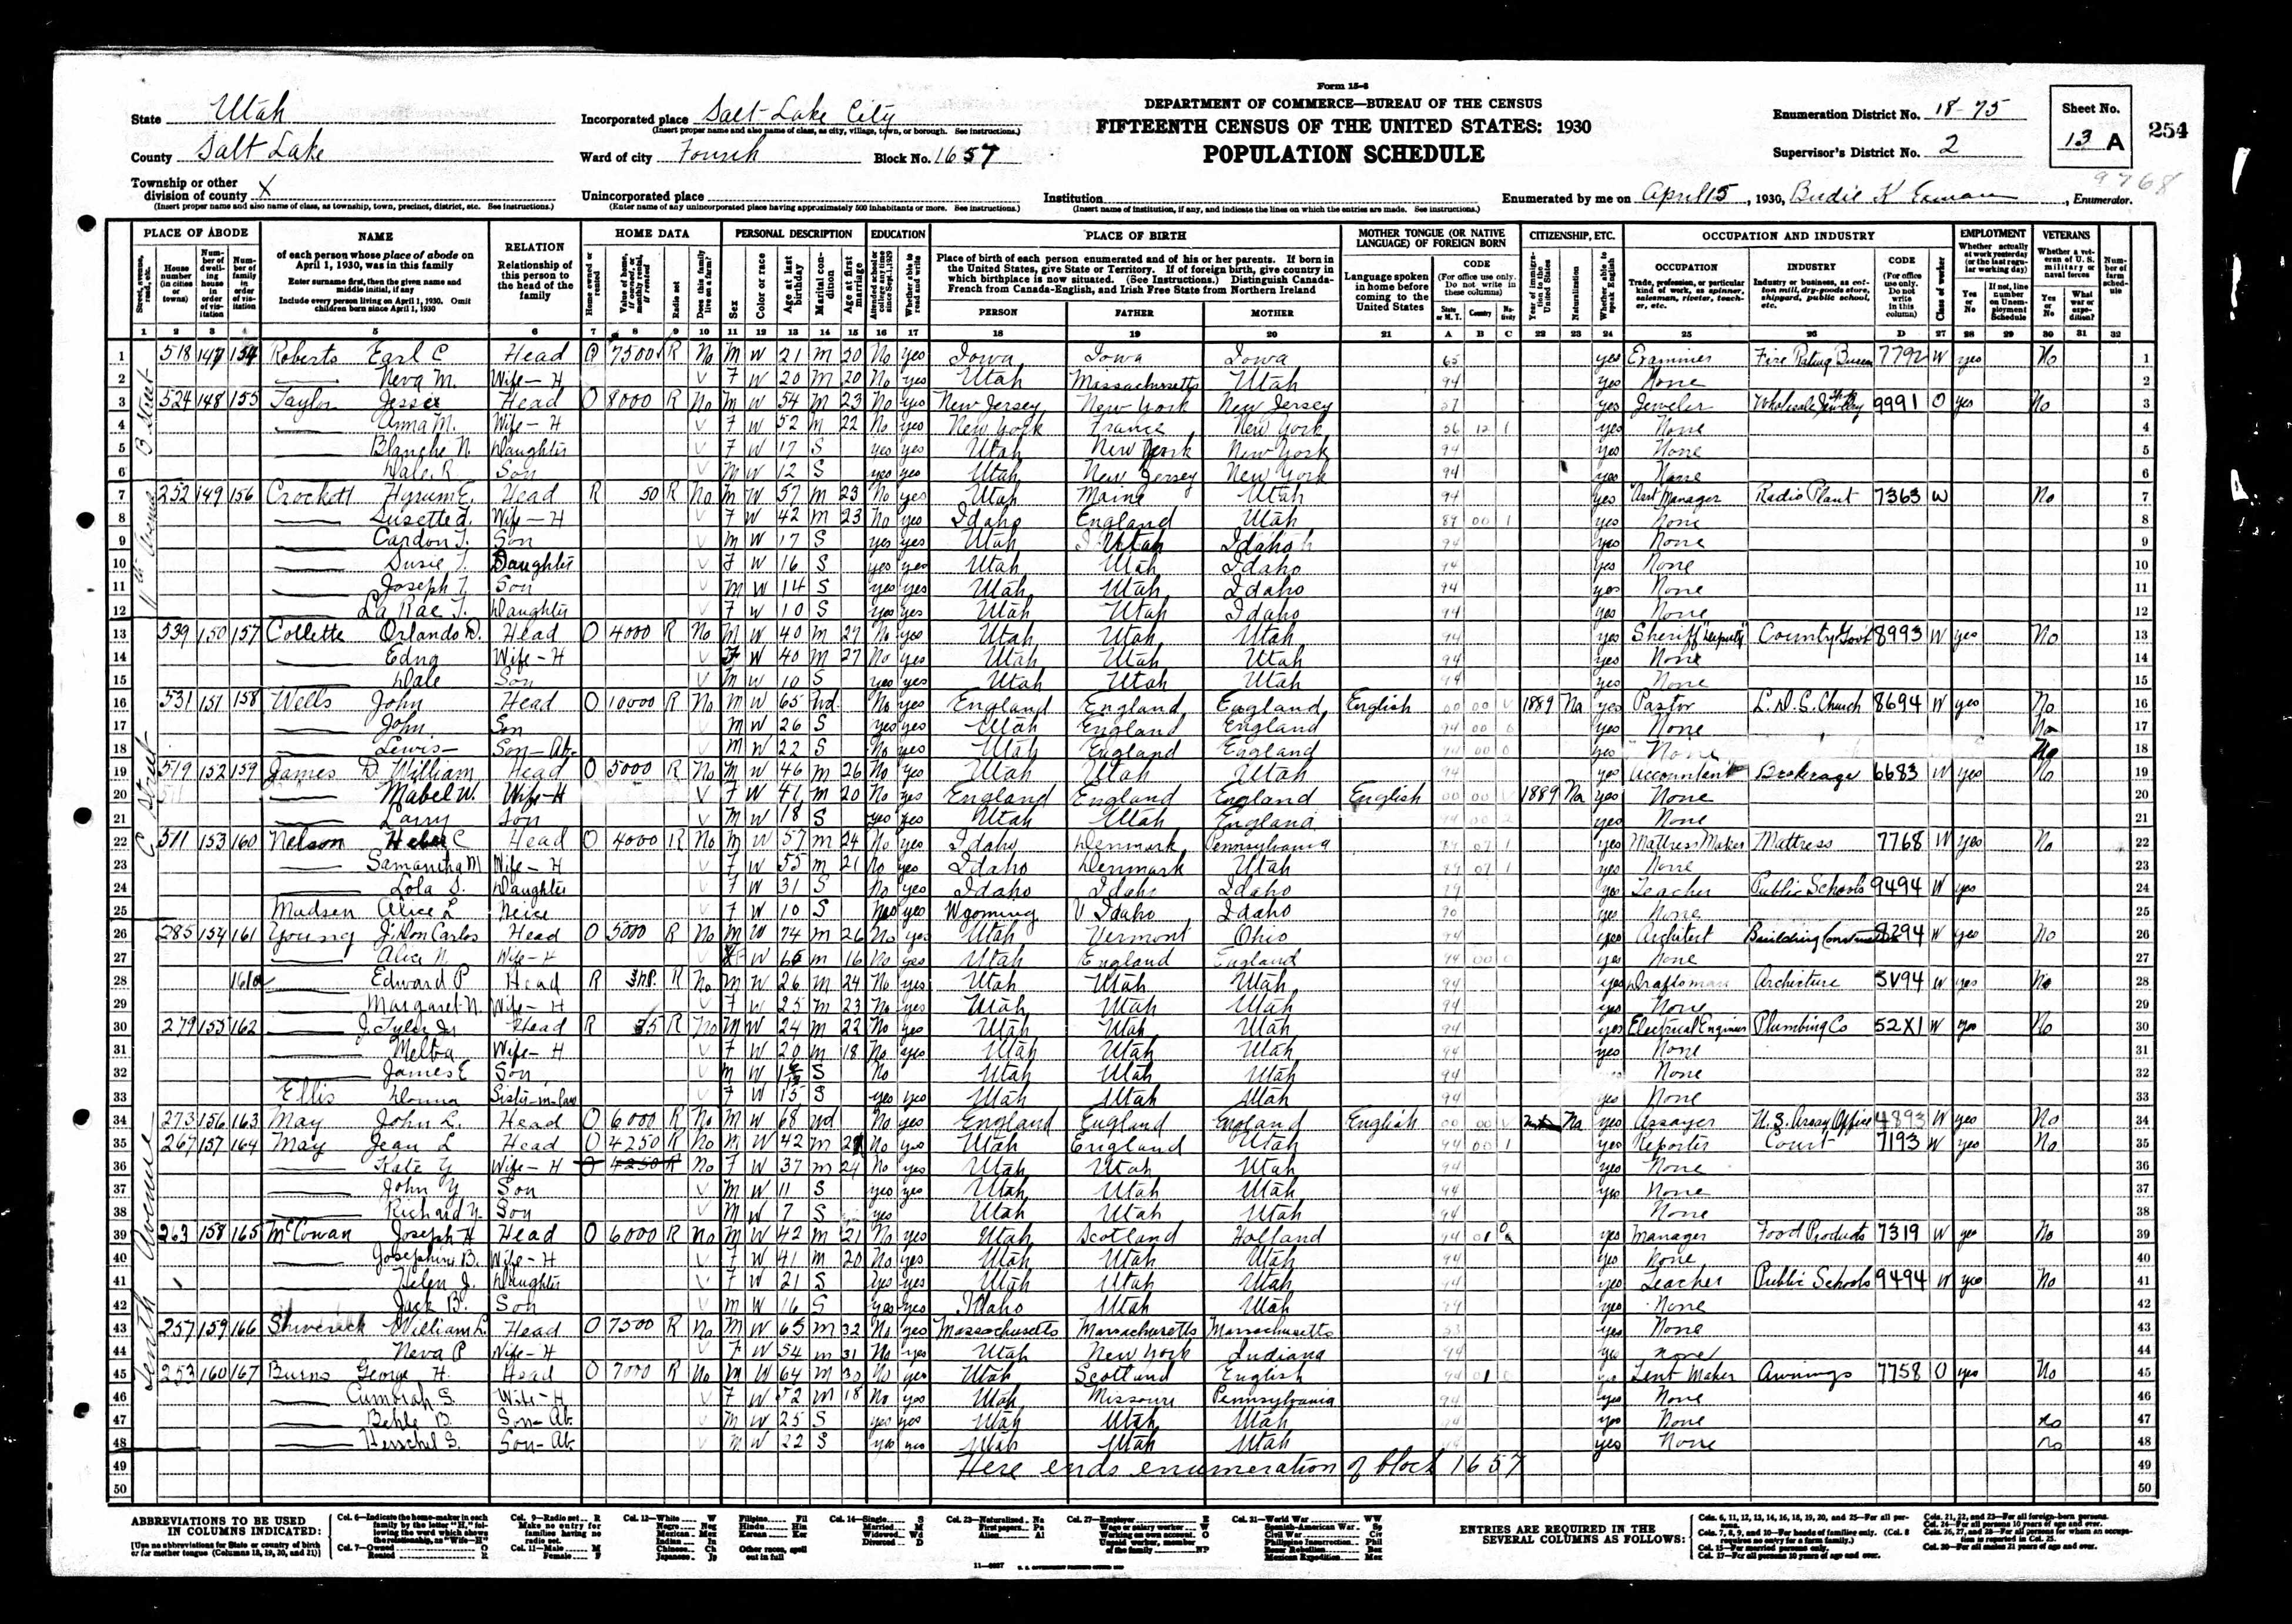 Form 15-6
DEPARTMENT OF COMMERCE—BUREAU OF THE CENSUS
FIFTEENTH CENSUS OF THE UNITED STATES: 1930
POPULATION SCHEDULE
State Utah
County Salt Lake
Township or other division of county X
(Insert proper name and also name of class, as township, town, precinct, district, etc. See instructions.)
Incorporated place Salt Lake City
(Insert proper name and also name of class, as city, village, town, or borough. See instructions.)
Ward of city Fourth Block No. 1657
Unincorporated place
(Enter name of any unincorporated place having approximately 500 inhabitants or more. See instructions.)
Institution
(Insert name of institution, if any, and indicate the lines on which the entries are made. See instructions.)
Enumeration District No. 18-75
Supervisor's District No. 2
Sheet No. 13 A
254
9768
Enumerated by me on April 15, 1930, Birdie K , Enumerator.
PLACE OF ABODE NAME RELATION HOME DATA PERSONAL DESCRIPTION EDUCATION PLACE OF BIRTH MOTHER TONGUE (OR NATIVE LANGUAGE) OF FOREIGN BORN CITIZENSHIP, ETC. OCCUPATION AND INDUSTRY EMPLOYMENT VETERANS
B Street
11th Avenue
C Street
Tenth Avenue
1 518 147 154 Roberts Earl C Head O 7500 R No M W 21 M 20 No yes Iowa Iowa Iowa 65 yes Examiner Fire Rating Bureau 7792 W yes No 1
2 Neva M. Wife-H V F W 20 M 20 No yes Utah Massachusetts Utah 94 yes None 2
3 524 148 155 Taylor Jesse Head O 8000 R No M W 54 M 23 No yes New Jersey New York New Jersey 57 yes Jeweler Wholesale Jewelry 9991 O yes No 3
4 Anna M. Wife-H V F W 52 M 22 No yes New York France New York 56 12 1 yes None 4
5 Blanche N. Daughter V F W 17 S yes yes Utah New York New York 94 yes None 5
6 Dale R Son V M W 12 S yes yes Utah New Jersey New York 94 yes None 6
7 252 149 156 Crockett Hyrum E. Head R 50 R No M W 57 M 23 No yes Utah Maine Utah 94 yes Asst Manager Radio Plant 7363 W No 7
8 Susette T. Wife-H V F W 42 M 23 No yes Idaho England Utah 89 00 1 yes None 8
9 Cardon T. Son V M W 17 S yes yes Utah Utah Idaho 94 yes None 9
10 Susie T. Daughter V F W 16 S yes yes Utah Utah Idaho 94 yes None 10
11 Joseph T. Son V M W 14 S yes yes Utah Utah Idaho 94 yes None 11
12 La Rae T. Daughter V F W 10 S yes yes Utah Utah Idaho 94 yes None 12
13 539 150 157 Collette Orlando D. Head O 4000 R No M W 40 M 27 No yes Utah Utah Utah 94 yes Sheriff "Deputy" County Gov't 8993 W yes No 13
14 Edna Wife-H V F W 40 M 27 No yes Utah Utah Utah 94 yes None 14
15 Dale Son V M W 10 S yes yes Utah Utah Utah 94 yes None 15
16 531 151 158 Wells John Head O 10000 R No M W 65 Wd No yes England England England English 00 00 V 1889 Na yes Pastor L.D.S. Church 8694 W yes No 16
17 John Son V M W 26 S yes yes Utah England England 94 00 0 yes None No 17
18 Lewis Son-Ab. V M W 22 S No yes Utah England England 94 00 0 yes None No 18
19 519 152 159 James D. William Head O 5000 R No M W 46 M 26 No yes Utah Utah Utah 94 yes Accountant Brokerage 6683 W yes No 19
20 Mabel W. Wife-H V F W 41 M 20 No yes England England England English 00 00 V 1889 Na yes None 20
21 Larry Son V M W 18 S yes yes Utah Utah England 94 00 2 yes None 21
22 511 153 160 Nelson Heber C Head O 4000 R No M W 57 M 24 No yes Idaho Denmark Pennsylvania 89 07 1 yes Mattress Maker Mattress 7768 W yes No 22
23 Samantha M Wife-H V F W 55 M 21 No yes Idaho Denmark Utah 89 07 1 yes None 23
24 Lola S. Daughter V F W 31 S No yes Idaho Idaho Idaho 89 yes Teacher Public Schools 9494 W yes 24
25 Madsen Alice L Neice V F W 10 S yes yes Wyoming Idaho Idaho 90 yes None 25
26 285 154 161 Young J. Don Carlos Head O 5000 R No M W 74 M 26 No yes Utah Vermont Ohio 94 yes Architect Building Construction 8294 W yes No 26
27 Alice N. Wife-H F W M 16 No yes Utah England England 94 00 0 yes None 27
28 161a Edward P Head R R No M W 26 M 24 No yes Utah Utah Utah 94 yes Draftsman Archicture 5V94 W yes No 28
29 Margaret N. Wife-H V F W 25 M 23 No yes Utah Utah Utah 94 yes None 29
30 279 155 162 J. Tyler Jr Head R 35 R No M W 24 M 22 No yes Utah Utah Utah 94 yes Electrical Engineer Plumbing Co 52X1 W yes No 30
31 Melba Wife-H V F W 20 M 18 No yes Utah Utah Utah 94 yes None 31
32 James E Son V M W S No Utah Utah Utah 94 None 32
33 Ellis Donna Sister-in-law V F W 15 S yes yes Utah Utah Utah 94 yes None 33
34 273 156 163 May John L. Head O 6000 R No M W 68 Wd No yes England England England English 00 00 V Na yes Assayer U.S. Assay Office 4893 W yes No 34
35 267 157 164 May Jean L Head O 4250 R No M W 42 M No yes Utah England Utah 94 00 1 yes Reporter Court 7193 W yes No 35
36 Kate Y Wife-H O 4250 R No F W 37 M 24 No yes Utah Utah Utah 94 yes None 36
37 John Y Son V M W 11 S yes yes Utah Utah Utah 94 yes None 37
38 Richard Y. Son V M W 7 S yes Utah Utah Utah 94 None 38
39 263 158 165 McCowan Joseph H Head O 6000 R No M W 42 M 21 No yes Utah Scotland Holland 94 01 yes Manager Food Products 7319 W yes No 39
40 Josephine B. Wife-H V F W 41 M 20 No yes Utah Utah Utah 94 yes None 40
41 Helen J. Daughter V F W 21 S yes yes Utah Utah Utah 94 yes Teacher Public Schools 9494 W yes No 41
42 Jack B. Son V M W 16 S yes yes Idaho Utah Utah 89 yes None 42
43 257 159 166 Shiverick William L. Head O 7500 R No M W 65 M 32 No yes Massachusetts Massachusetts Massachusetts 53 yes None 43
44 Neva P Wife-H F W 54 M 31 No yes Utah New York Indiana 94 yes None 44
45 253 160 167 Burns George H. Head O 7000 R No M W 64 M 30 No yes Utah Scotland English 94 01 0 yes Tent Maker Awnings 7758 O yes No 45
46 Cumorah S. Wife-H V F W 52 M 18 No yes Utah Missouri Pennsylvania 94 yes None 46
47 Behle B. Son-Ab. V M W 25 S yes yes Utah Utah Utah 94 yes None No 47
48 Herschel S. Son-Ab. V M W 22 S yes yes Utah Utah Utah yes None No 48
49 Here ends enumeration of block 1657 49
50 50
ABBREVIATIONS TO BE USED IN COLUMNS INDICATED:
[Use no abbreviations for State or country of birth or for mother tongue (Columns 18, 19, 20, and 21)]
ENTRIES ARE REQUIRED IN THE SEVERAL COLUMNS AS FOLLOWS: